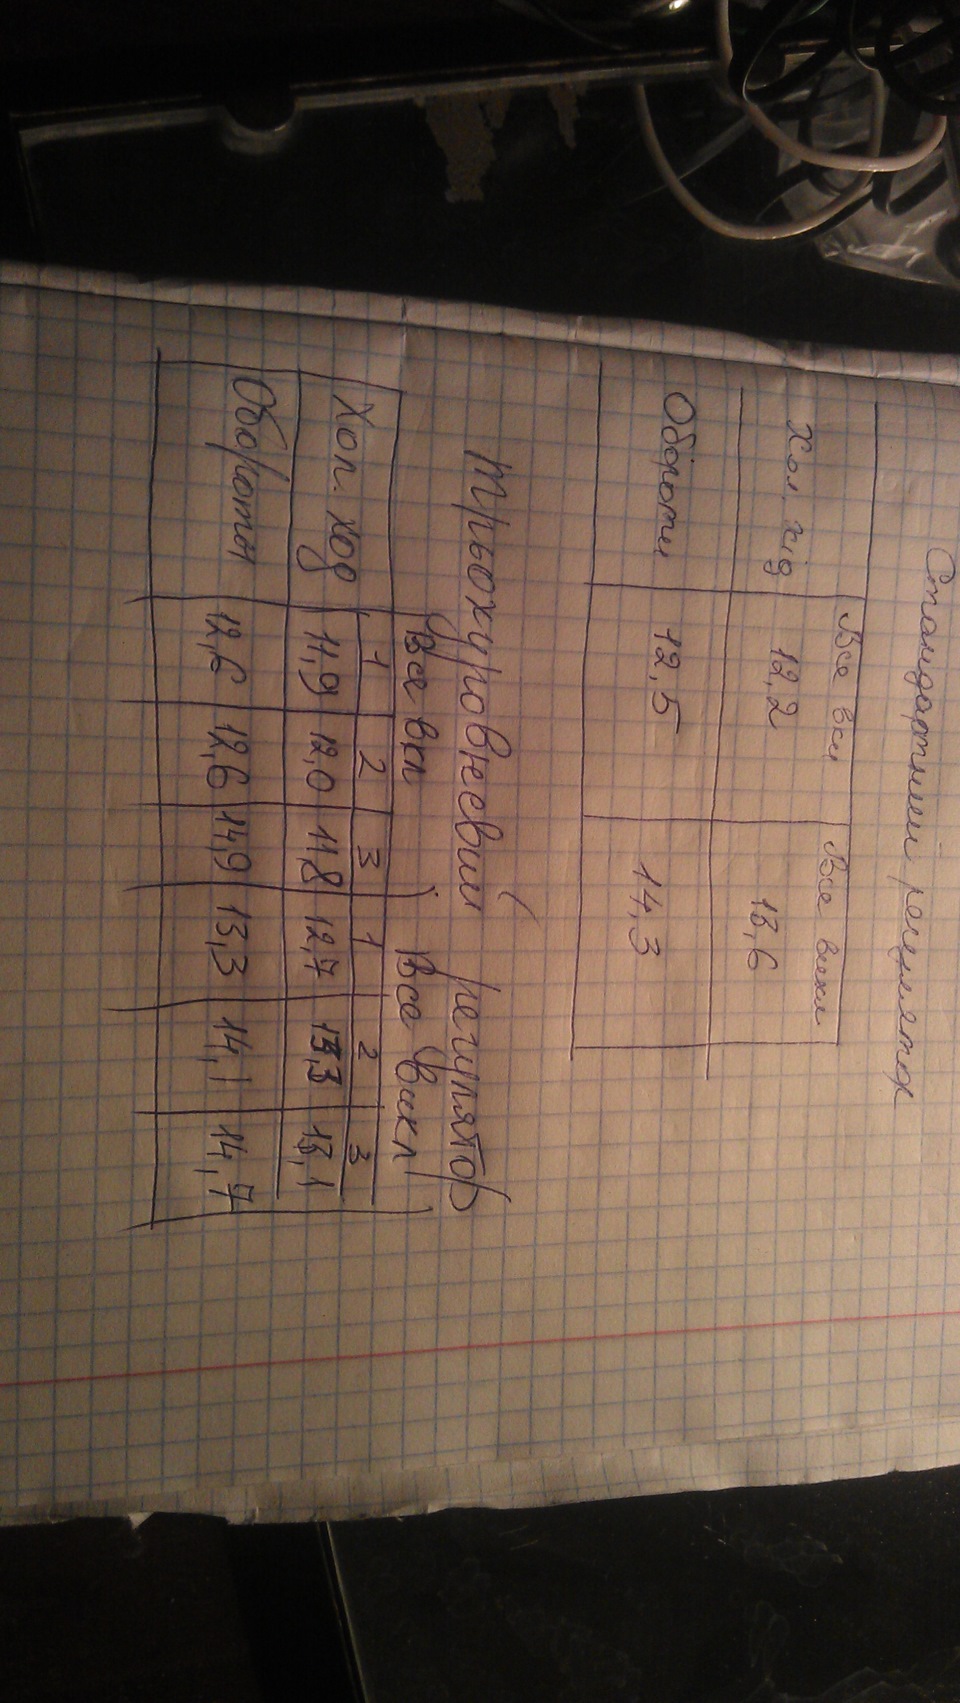 Стандартний регулятор
Все вкл Все викл
Хол. хід 12,2 13,6
Обороти 12,5 14,3
Трьохуровневий регулятор
Все вкл Все викл
1 2 3 1 2 3
Хол. ход 11,9 12,0 11,8 12,7 13,3 13,1
Обороти 12,6 12,6 14,9 13,3 14,1 14,7